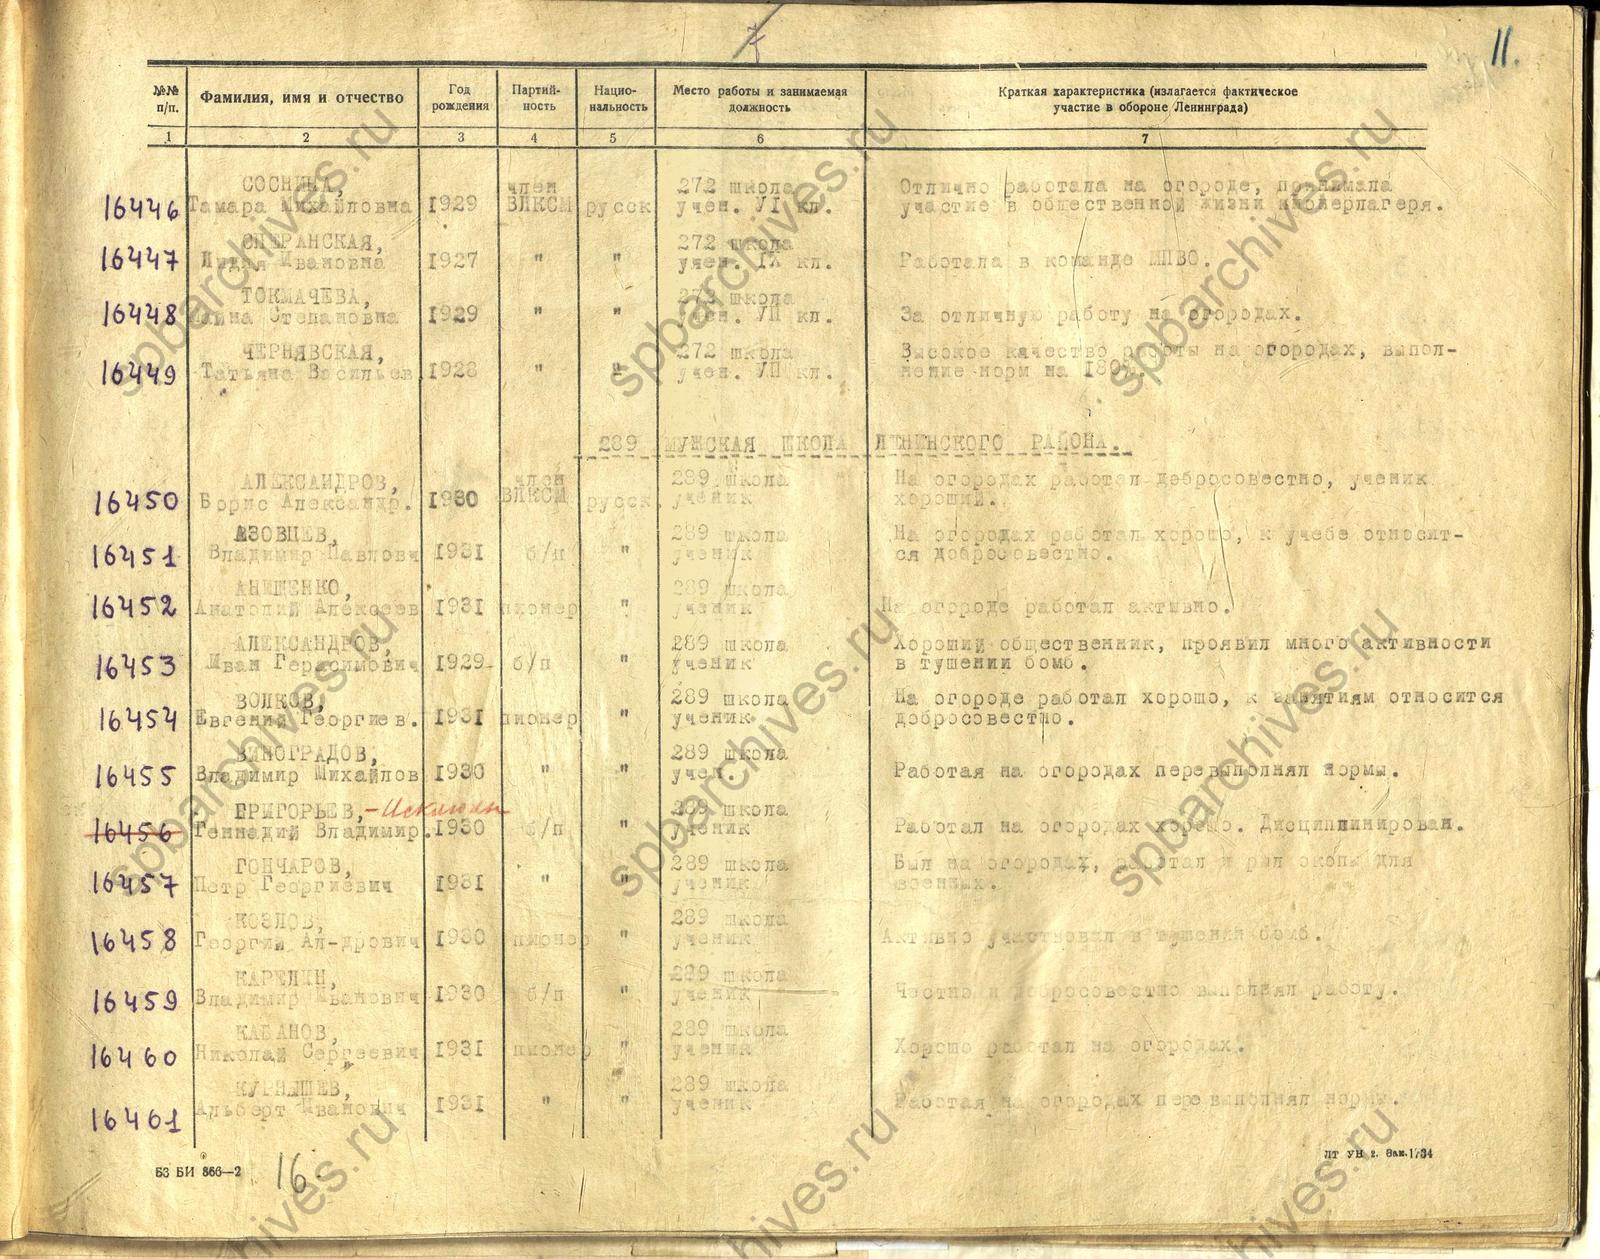 11.
№№ п/п. Фамилия, имя и отчество Год рождения Партий-ность Нацио-нальность Место работы и занимаемая должность Краткая характеристика (излагается фактическое участие в обороне Ленинграда)
1 2 3 4 5 6 7
СОСНИНА, член 272 школа Отлично работала на огороде, принимала
16446 Тамара Михайловна 1929 ВЛКСМ русск учен. VI кл. участие в общественной жизни пионерлагеря.
СПЕРАНСКАЯ, 272 школа
16447 Лидия Ивановна 1927 " " учен. IX кл. Работала в команде МПВО.
ТОКМАЧЕВА, 272 школа
16448 Степановна 1929 " " учен. VII кл. За отличную работу на огородах.
ЧЕРНЯВСКАЯ, 272 школа Высокое качество работы на огородах, выпол-
16449 Татьяна Васильев. 1928 " " учен. VII кл. нение норм на 180%.
289 МУЖСКАЯ ШКОЛА ЛЕНИНСКОГО РАЙОНА.
АЛЕКСАНДРОВ, член 289 школа На огородах работал добросовестно, ученик
16450 Борис Александр. 1930 ВЛКСМ русск. ученик хороший.
АЗОВЦЕВ, 289 школа На огородах работал хорошо, к учебе относит-
16451 Владимир Павлович 1931 б/п " ученик ся добросовестно.
АНИЩЕНКО, 289 школа
16452 Анатолий Алексеев 1931 пионер " ученик На огороде работал активно.
АЛЕКСАНДРОВ, 289 школа Хороший общественник, проявил много активности
16453 Иван Герасимович 1929 б/п " ученик в тушении бомб.
ВОЛКОВ, 289 школа На огороде работал хорошо, к занятиям относится
16454 Евгений Георгиев. 1931 пионер " ученик добросовестно.
ВИНОГРАДОВ, 289 школа
16455 Владимир Михайлов 1930 " " учен. Работая на огородах перевыполнял нормы.
ГРИГОРЬЕВ, 289 школа
16456 Геннадий Владимир. 1930 б/п " ученик Работал на огородах хорошо. Дисциплинирован.
ГОНЧАРОВ, 289 школа Был на огородах, работал и рыл окопы для
16457 Петр Георгиевич 1931 " " ученик военных.
КОЗЛОВ, 289 школа
16458 Георгий Ал-дрович 1930 пионер " ученик Активно участвовал в тушении бомб.
КАРЕЛИН, 289 школа
16459 Владимир Иванович 1930 б/п " ученик Честно и добросовестно выполнял работу.
КАБАНОВ, 289 школа
16460 Николай Сергеевич 1931 пионер " ученик Хорошо работал на огородах.
КУРНЫШЕВ, 289 школа
16461 Альберт Иванович 1931 " " ученик Работая на огородах перевыполнял нормы.
БЗ БИ 366—2 16
ЛТ УН 2. Зак.1734
spbarchives.ru